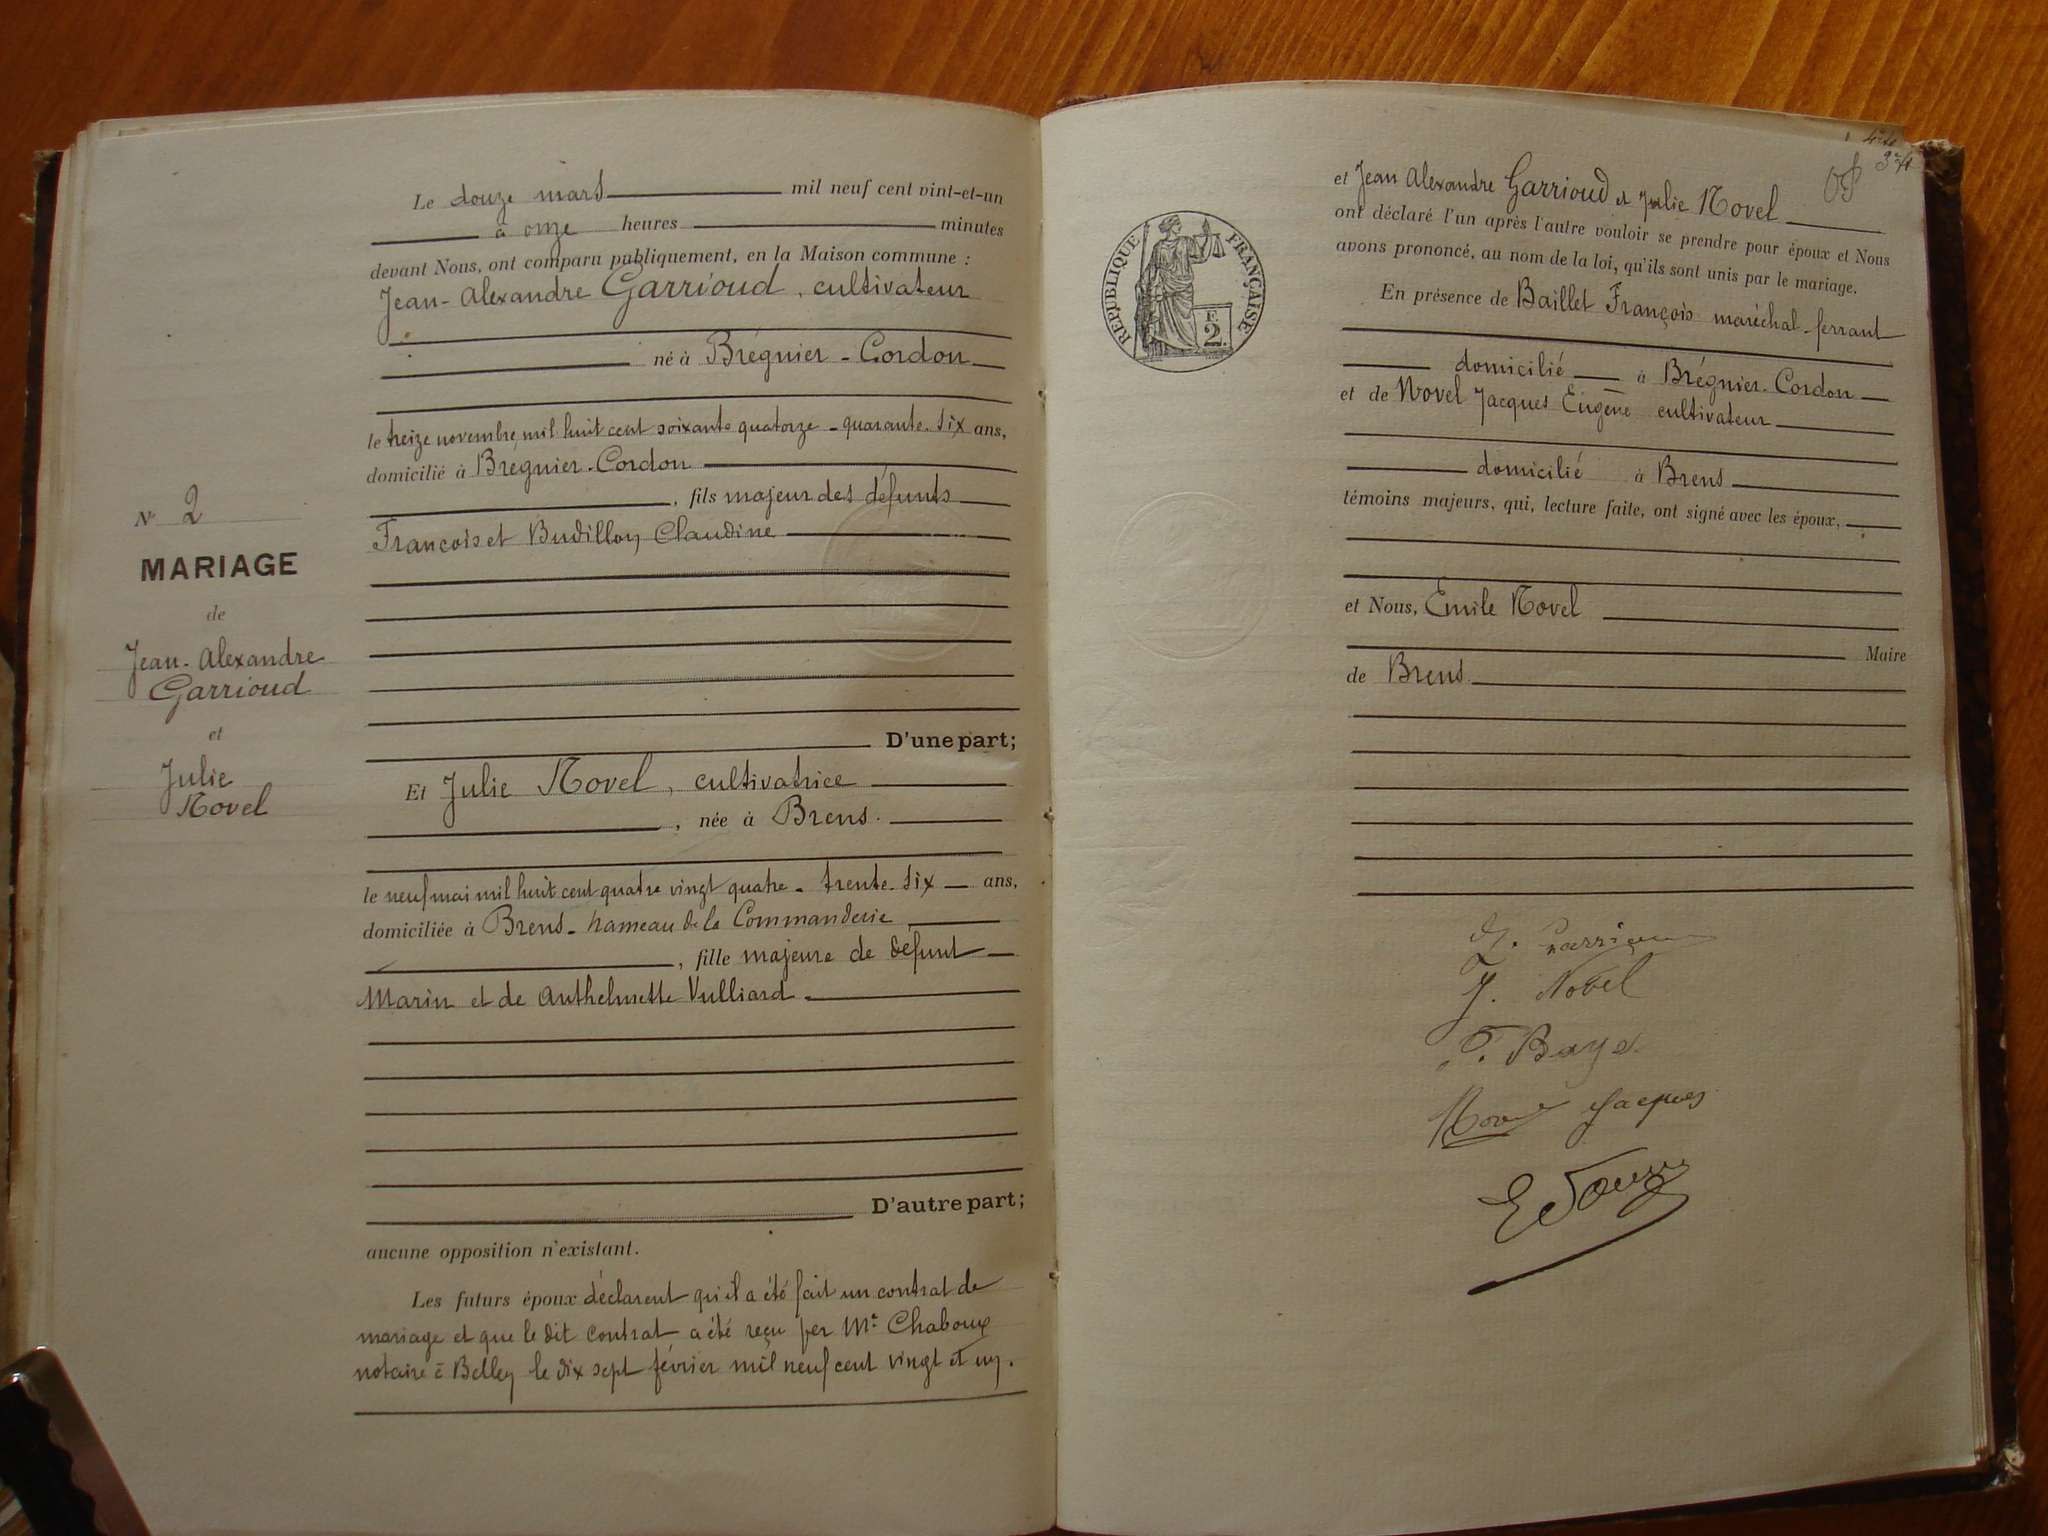 Le douze mars mil neuf cent vint-et-un
à onze heures minutes
devant Nous, ont comparu publiquement, en la Maison commune :
Jean-Alexandre Garrioud, cultivateur
né à Brégnier-Cordon
le treize novembre mil huit cent soixante quatorze - quarante-six ans,
domicilié à Brégnier-Cordon
, fils majeur des défunts
François et Budillon Claudine
N° 2
MARIAGE
de
Jean-Alexandre
Garrioud
et
Julie
Novel
D'une part;
Et Julie Novel, cultivatrice
, née à Brens.
le neuf mai mil huit cent quatre vingt quatre - trente-six ans,
domiciliée à Brens - hameau de la Commanderie
, fille majeure de défunt
Marin et de Anthelmette Vulliard
D'autre part;
aucune opposition n'existant.
Les futurs époux déclarent qu'il a été fait un contrat de
mariage et que le dit contrat a été reçu par Me Chaboux
notaire à Belley le dix sept février mil neuf cent vingt et un.
3e ft
et Jean Alexandre Garrioud et Julie Novel
ont déclaré l'un après l'autre vouloir se prendre pour époux et Nous
avons prononcé, au nom de la loi, qu'ils sont unis par le mariage.
En présence de Baillet François maréchal-ferrant
domicilié à Brégnier-Cordon
et de Novel Jacques Eugène cultivateur
domicilié à Brens
témoins majeurs, qui, lecture faite, ont signé avec les époux,
et Nous, Emile Novel
Maire
de Brens.
RÉPUBLIQUE FRANÇAISE
F.
2.
J. Novel
Novel Jacques